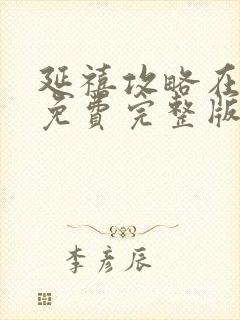 延禧攻略在
免费完整版
李彦辰